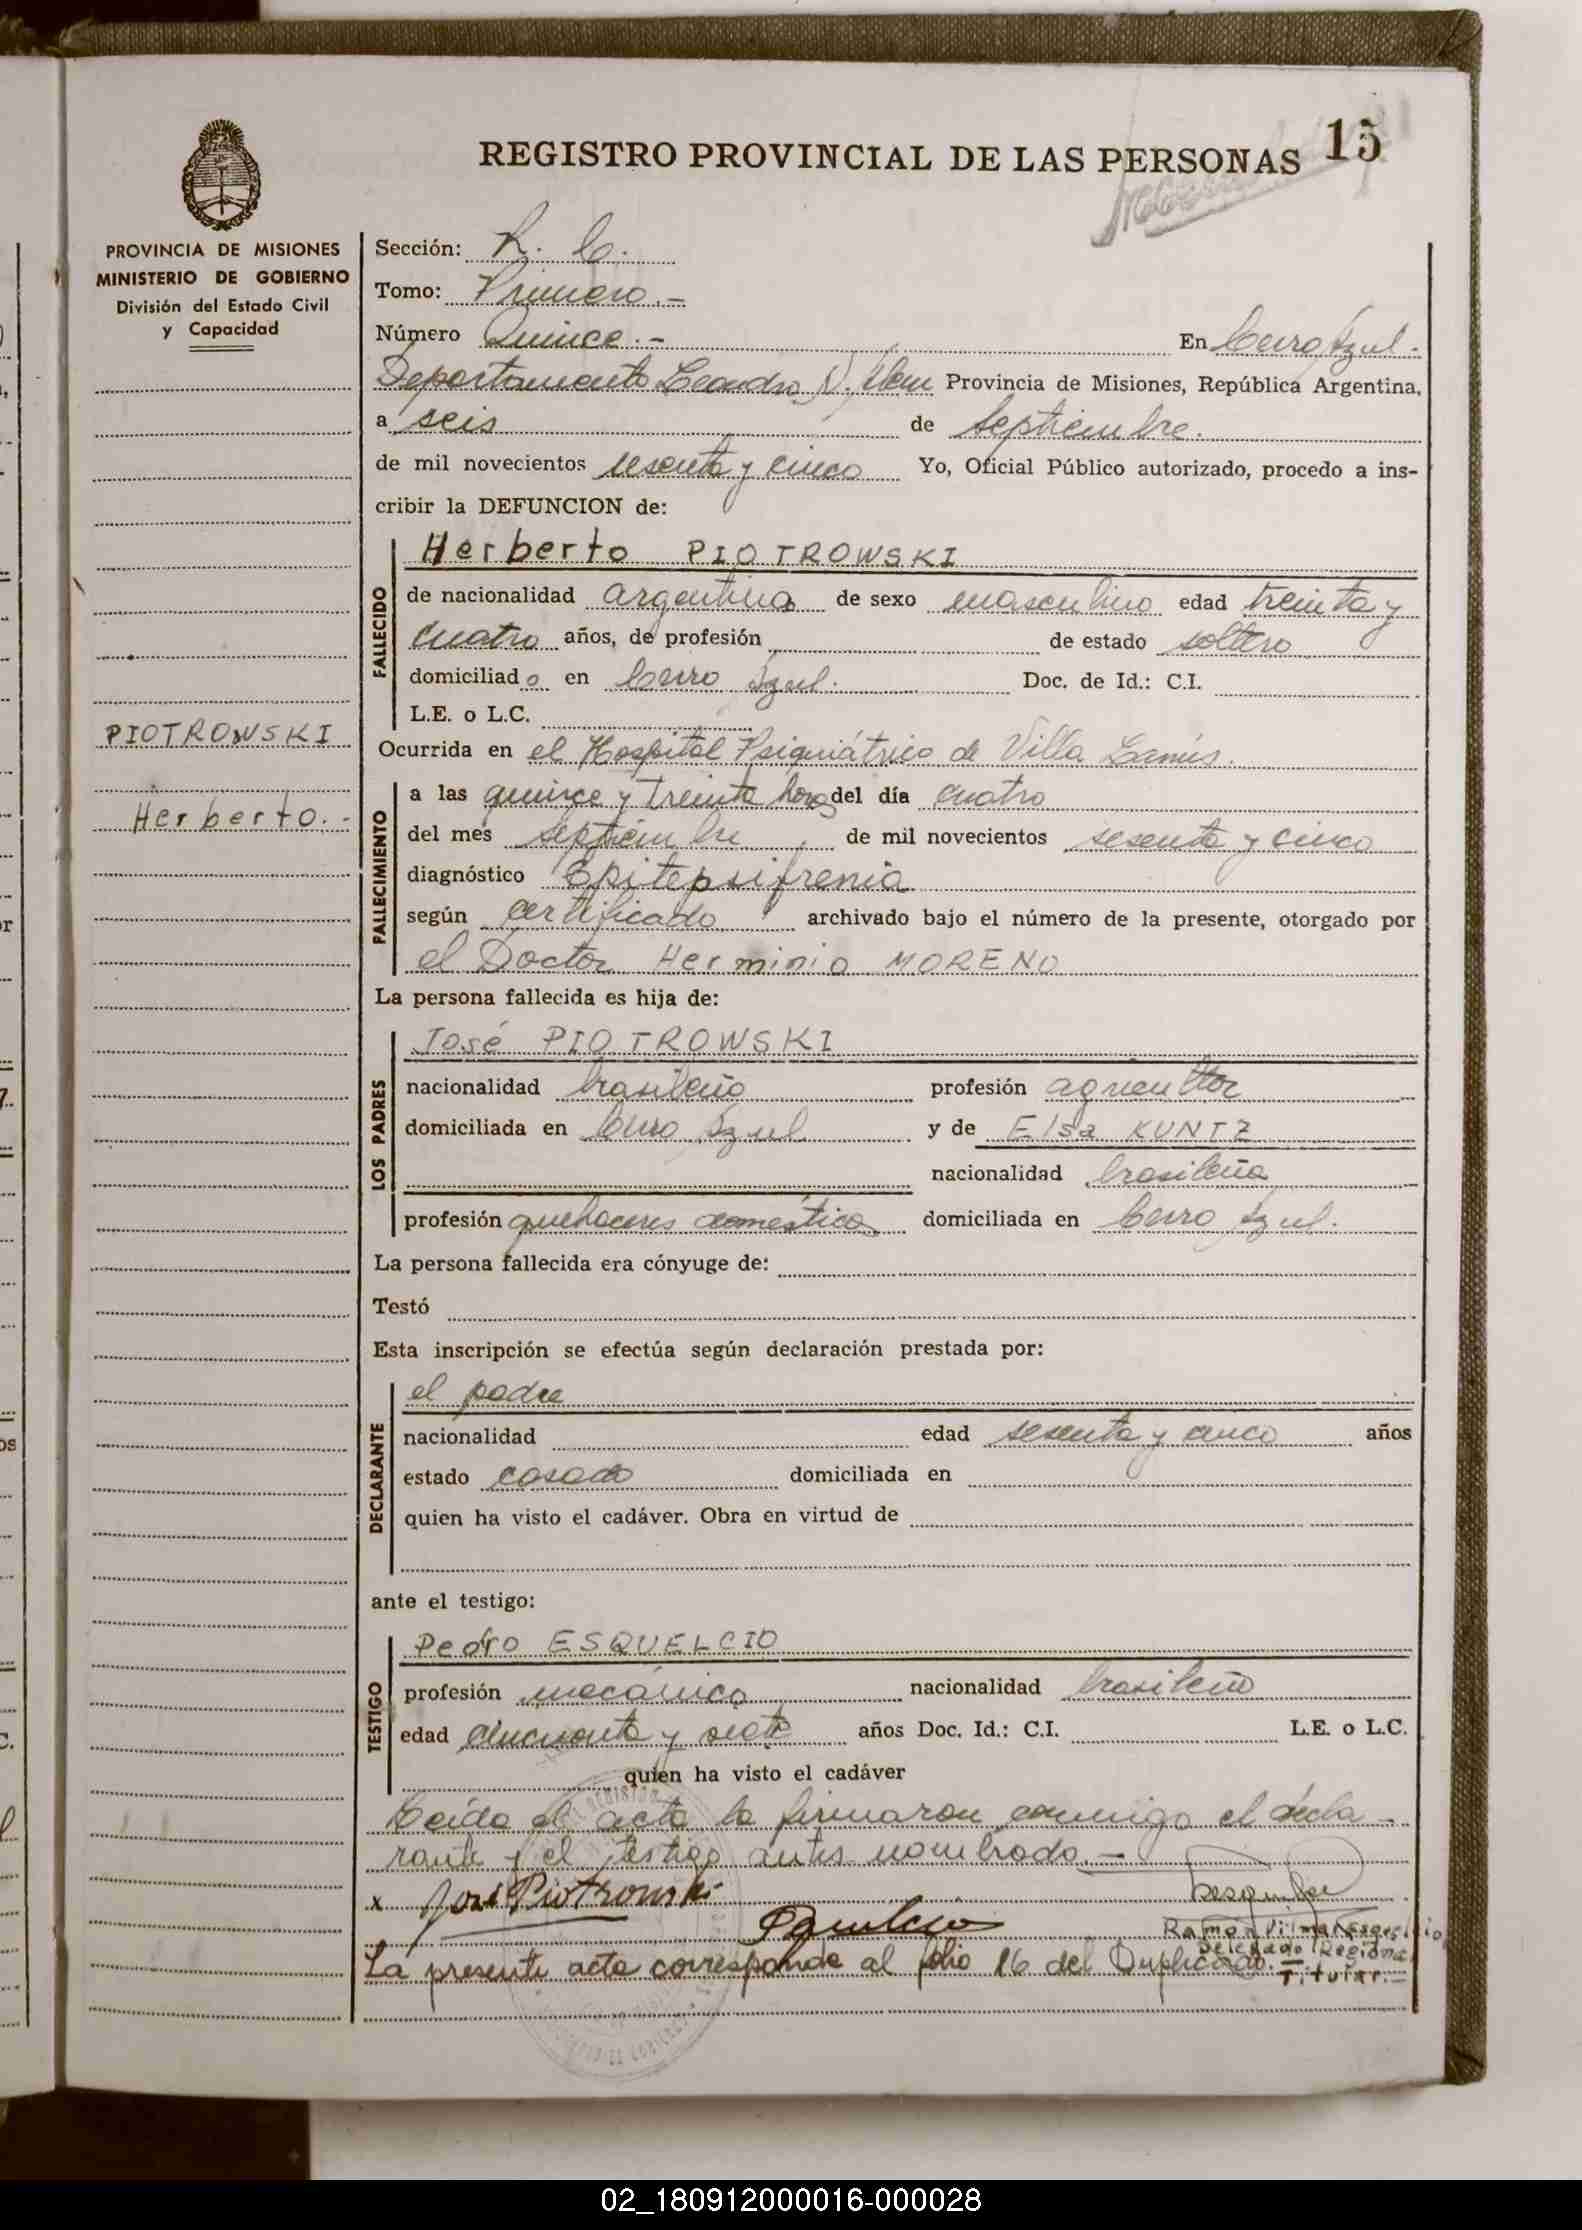 REGISTRO PROVINCIAL DE LAS PERSONAS 15
PROVINCIA DE MISIONES
MINISTERIO DE GOBIERNO
División del Estado Civil
y Capacidad
PIOTROWSKI
Herberto.-
Sección: R. C.
Tomo: Primero.-
Número Quince.- En Cerro Azul.
Departamento Leandro N. Alem Provincia de Misiones, República Argentina,
a seis de septiembre.
de mil novecientos sesenta y cinco Yo, Oficial Público autorizado, procedo a ins-
cribir la DEFUNCION de:
FALLECIDO
Herberto PIOTROWSKI
de nacionalidad argentina de sexo masculino edad treinta y
cuatro años, de profesión de estado soltero
domiciliado en Cerro Azul. Doc. de Id.: C.I.
L.E. o L.C.
Ocurrida en el Hospital Psiquiátrico de Villa Lanús.
FALLECIMIENTO
a las quince y treinta horas del día cuatro
del mes septiembre de mil novecientos sesenta y cinco
diagnóstico Epitepsifrenia
según certificado archivado bajo el número de la presente, otorgado por
el Doctor Herminio MORENO
La persona fallecida es hija de:
LOS PADRES
José PIOTROWSKI
nacionalidad brasileño profesión agricultor
domiciliada en Cerro Azul y de Elsa KUNTZ
nacionalidad brasileña
profesión quehaceres domésticos domiciliada en Cerro Azul.
La persona fallecida era cónyuge de:
Testó
Esta inscripción se efectúa según declaración prestada por:
DECLARANTE
el padre
nacionalidad edad sesenta y cinco años
estado casado domiciliada en
quien ha visto el cadáver. Obra en virtud de
ante el testigo:
TESTIGO
Pedro ESQUELCIO
profesión mecánico nacionalidad brasileño
edad cincuenta y siete años Doc. Id.: C.I. L.E. o L.C.
quien ha visto el cadáver
Leída el acta la firmaron conmigo el decla-
rante y el testigo antes nombrado.-
x José Piotrowski
Ramon Vilmar Esquelcio
Delegado Regional
Titular.-
La presente acta corresponde al folio 16 del Duplicado.-
02_180912000016-000028